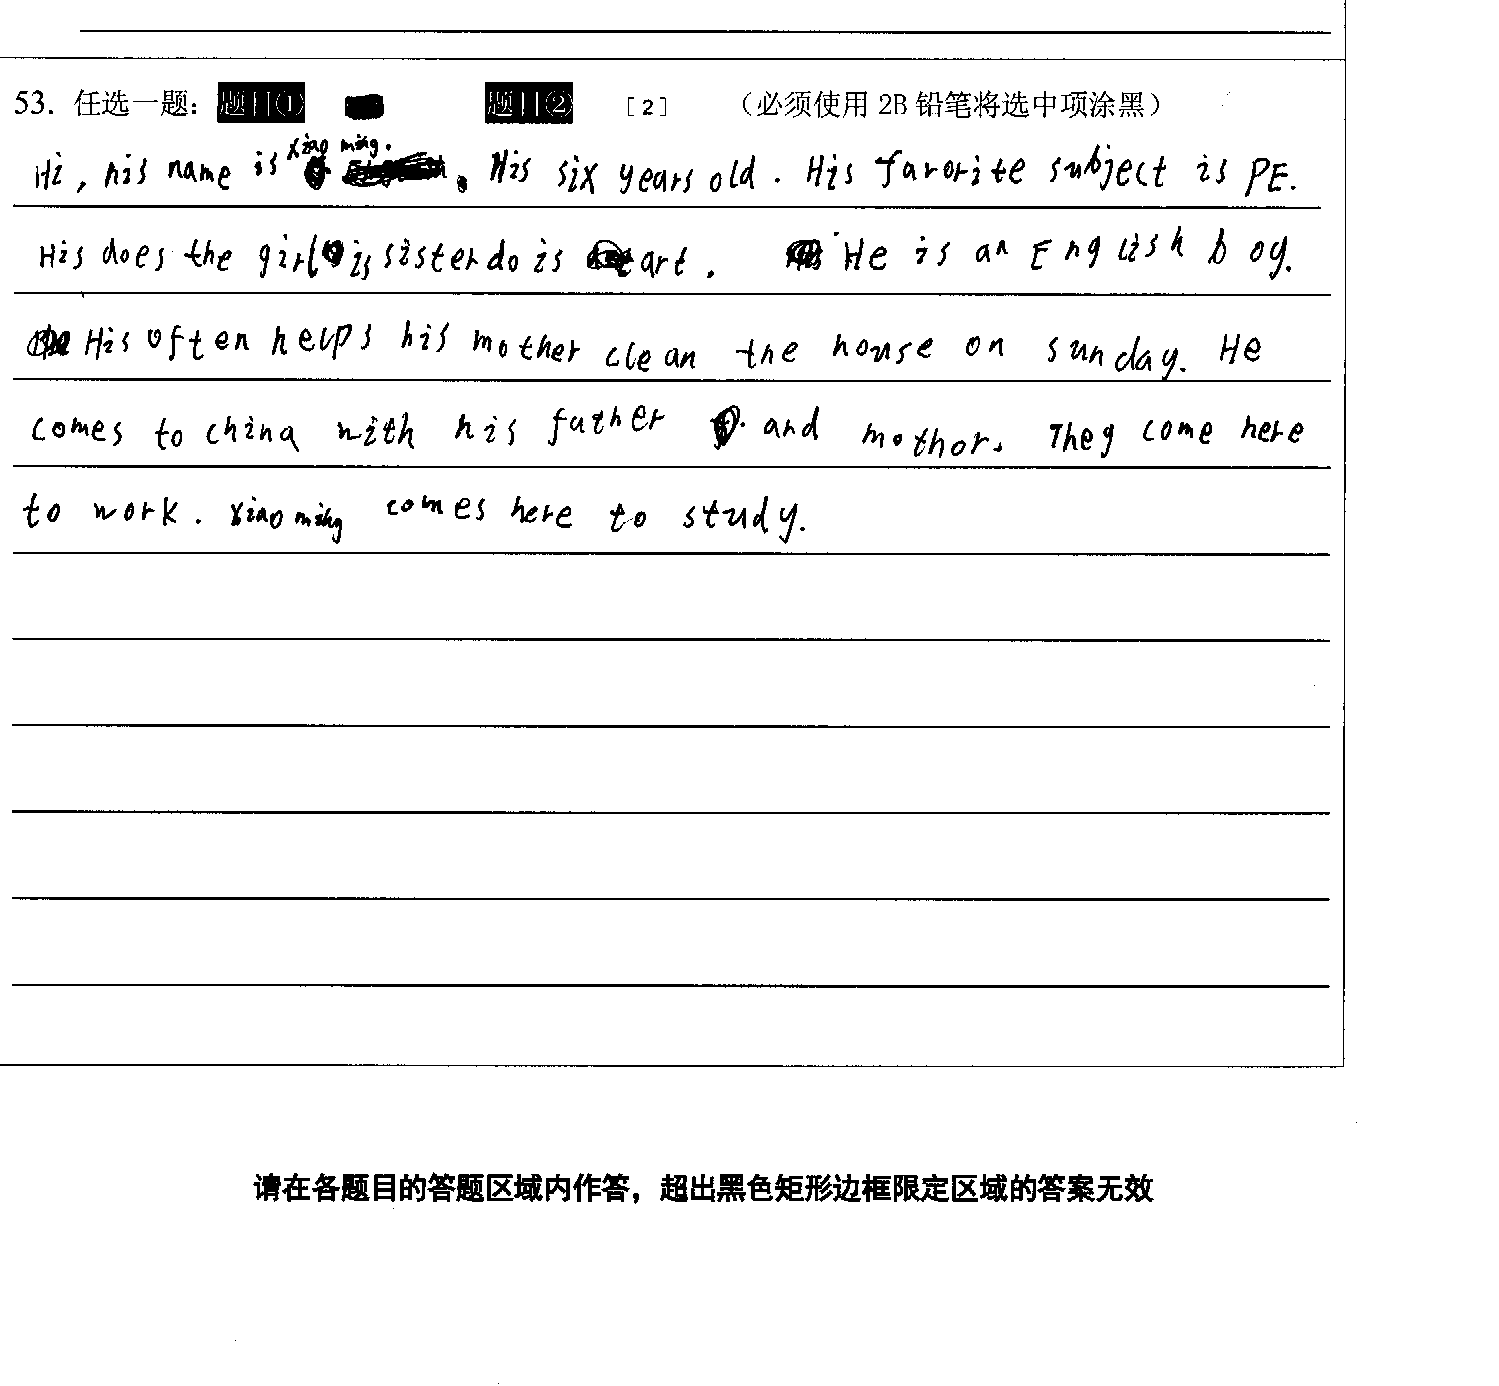 53. 任选一题: 题目① 题目② [2] (必须使用 2B 铅笔将选中项涂黑)
Xiao ming.
Hi, his name is . His six years old. His favorite subject is PE.
His does the girl is sister do is art. He is an English boy.
His often helps his mother clean the house on sunday. He
comes to china with his father and mothor. They come here
to work. Xiao ming comes here to study.
请在各题目的答题区域内作答，超出黑色矩形边框限定区域的答案无效